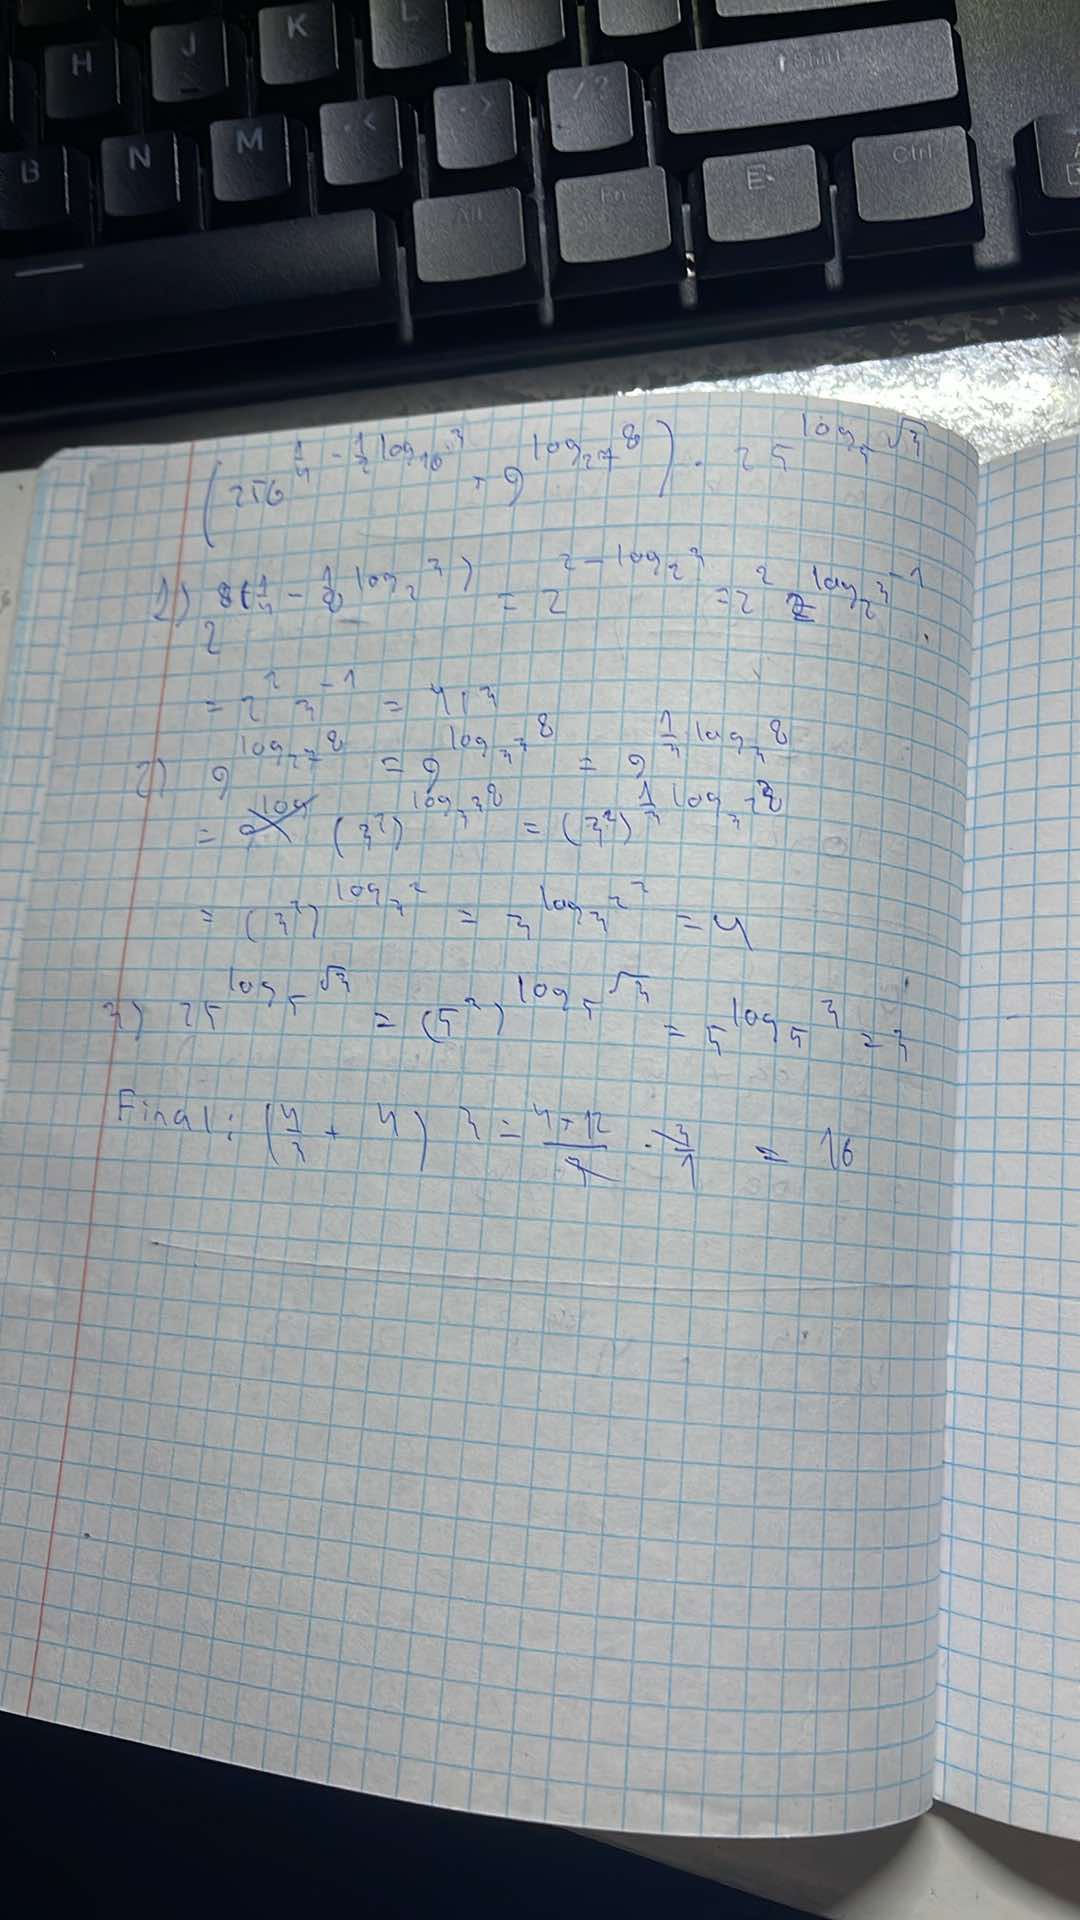 H J K L
B N M < > / ? Shift
Alt Fn E Ctrl
(256^{\frac{1}{4} - \frac{1}{2} log_{16} 3} + 9^{log_{27} 8}) · 25^{log_5 √3}
1) 2^{8(\frac{1}{4} - \frac{1}{8} log_2 3)} = 2^{2 - log_2 3} = 2^2 2^{log_2 3^{-1}}
= 2^2 3^{-1} = 4/3
2) 9^{log_{27} 8} = 9^{log_{3^3} 8} = 9^{\frac{1}{3} log_3 8}
= (3^2)^{log_{3^3} 8} = (3^2)^{\frac{1}{3} log_3 2^3}
= (3^2)^{log_3 2} = 3^{log_3 2^2} = 4
3) 25^{log_5 √3} = (5^2)^{log_5 √3} = 5^{log_5 3} = 3
Final: (\frac{4}{3} + 4) 3 = \frac{4+12}{3} · \frac{3}{1} = 16